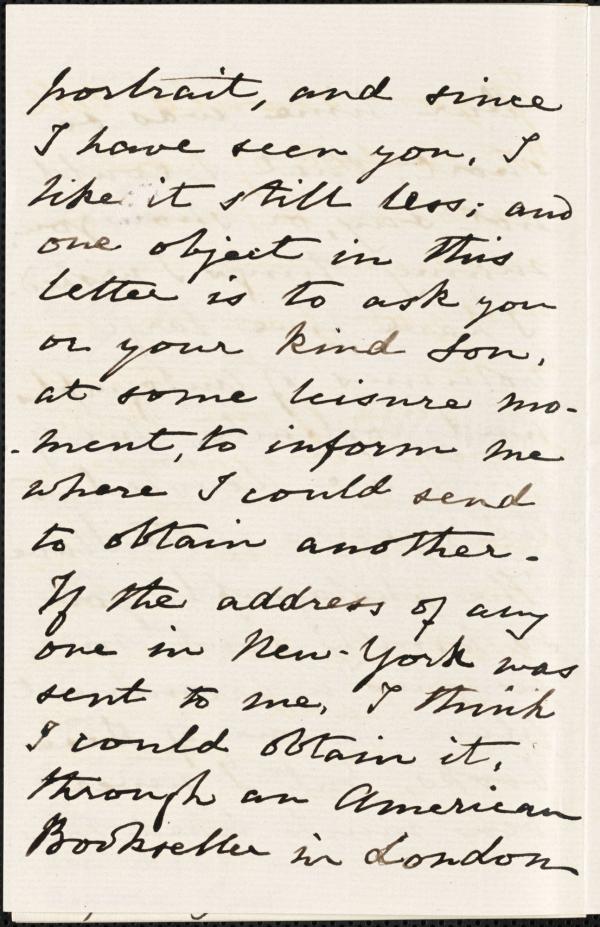 portrait, and since
I have seen you, I
like it still less; and
one object in this
letter is to ask you
or your kind Son,
at some leisure mo-
-ment, to inform me
where I could send
to obtain another.
If the address of any
one in New-York was
sent to me, I think
I could obtain it,
through an American
Bookseller in London